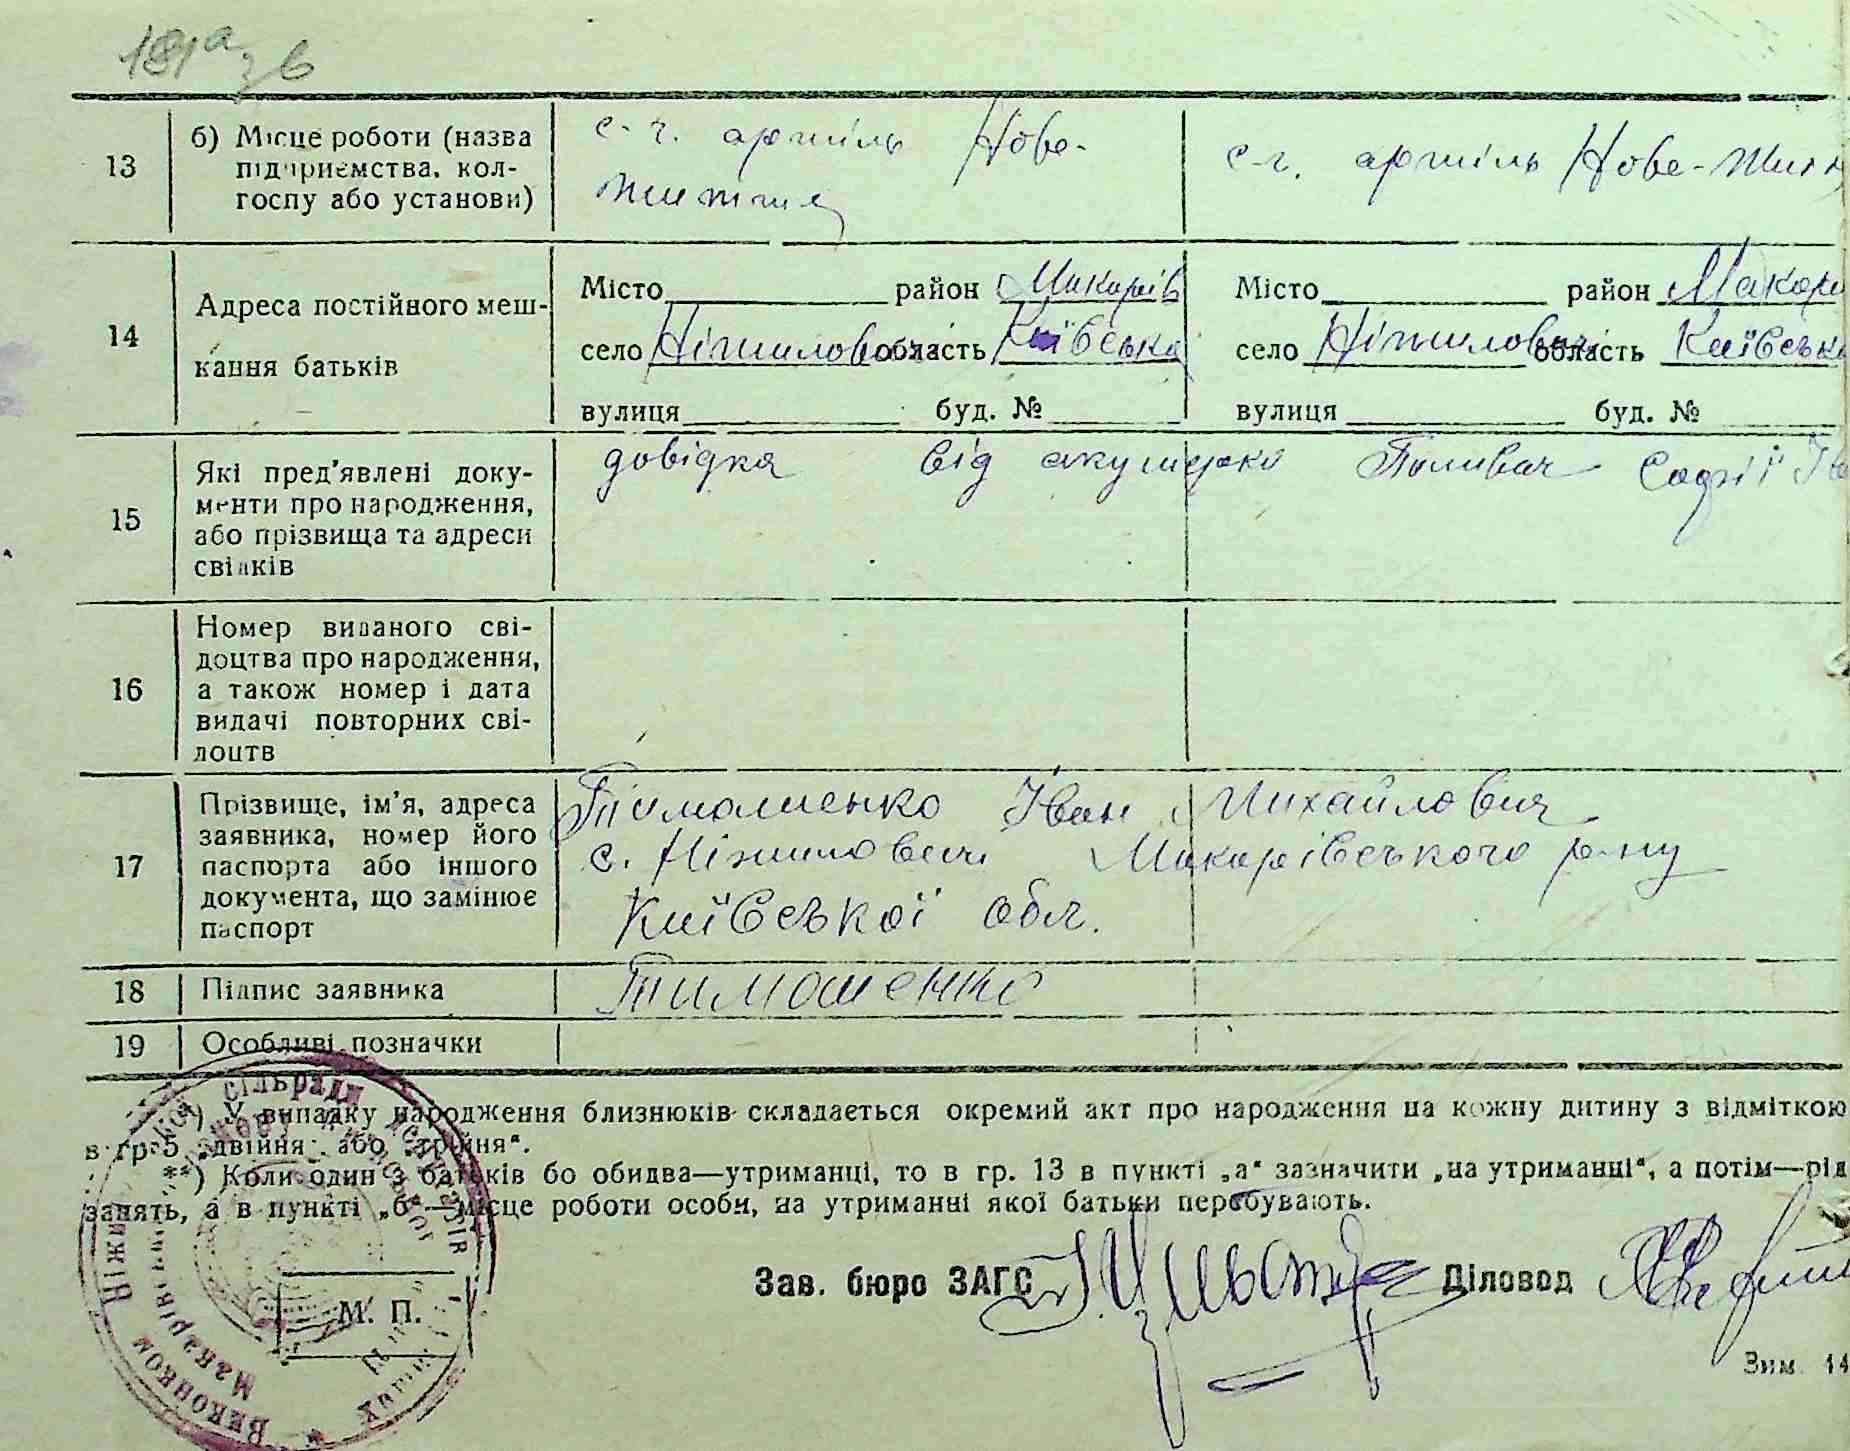 181а зв
13
б) Місце роботи (назва
підприємства, кол-
госпу або установи)
с-г. артіль Нове-
життя
с-г. артіль Нове-Життя
14
Адреса постійного меш-
кання батьків
Місто район Макарів
село Ніжиловичі область Київська
вулиця буд. №
Місто район Макарі
село Ніжиловичі область Київська
вулиця буд. №
15
Які пред'явлені доку-
менти про народження,
або прізвища та адреси
свідків
довідка від акушерки Поливач Софії Ів
16
Номер виданого сві-
доцтва про народження,
а також номер і дата
видачі повторних сві-
доцтв
17
Прізвище, ім'я, адреса
заявника, номер його
паспорта або іншого
документа, що замінює
паспорт
Тимошенко Іван Михайлович
с. Ніжиловичі Макарівського р-ну
Київської обл.
18
Підпис заявника
Тимошенко
19
Особливі позначки
*) У випадку народження близнюків складається окремий акт про народження на кожну дитину з відміткою
в гр. 5 „двійня“ або „трійня“.
**) Коли один з батьків бо обидва—утриманці, то в гр. 13 в пункті „а“ зазначити „на утриманні“, а потім—рід
занять, а в пункті „б“—місце роботи особи, на утриманні якої батьки перебувають.
Зав. бюро ЗАГС
Діловод
М. П.
Зим. 14
Виконком Ніжи сільради деп
Макарівськ